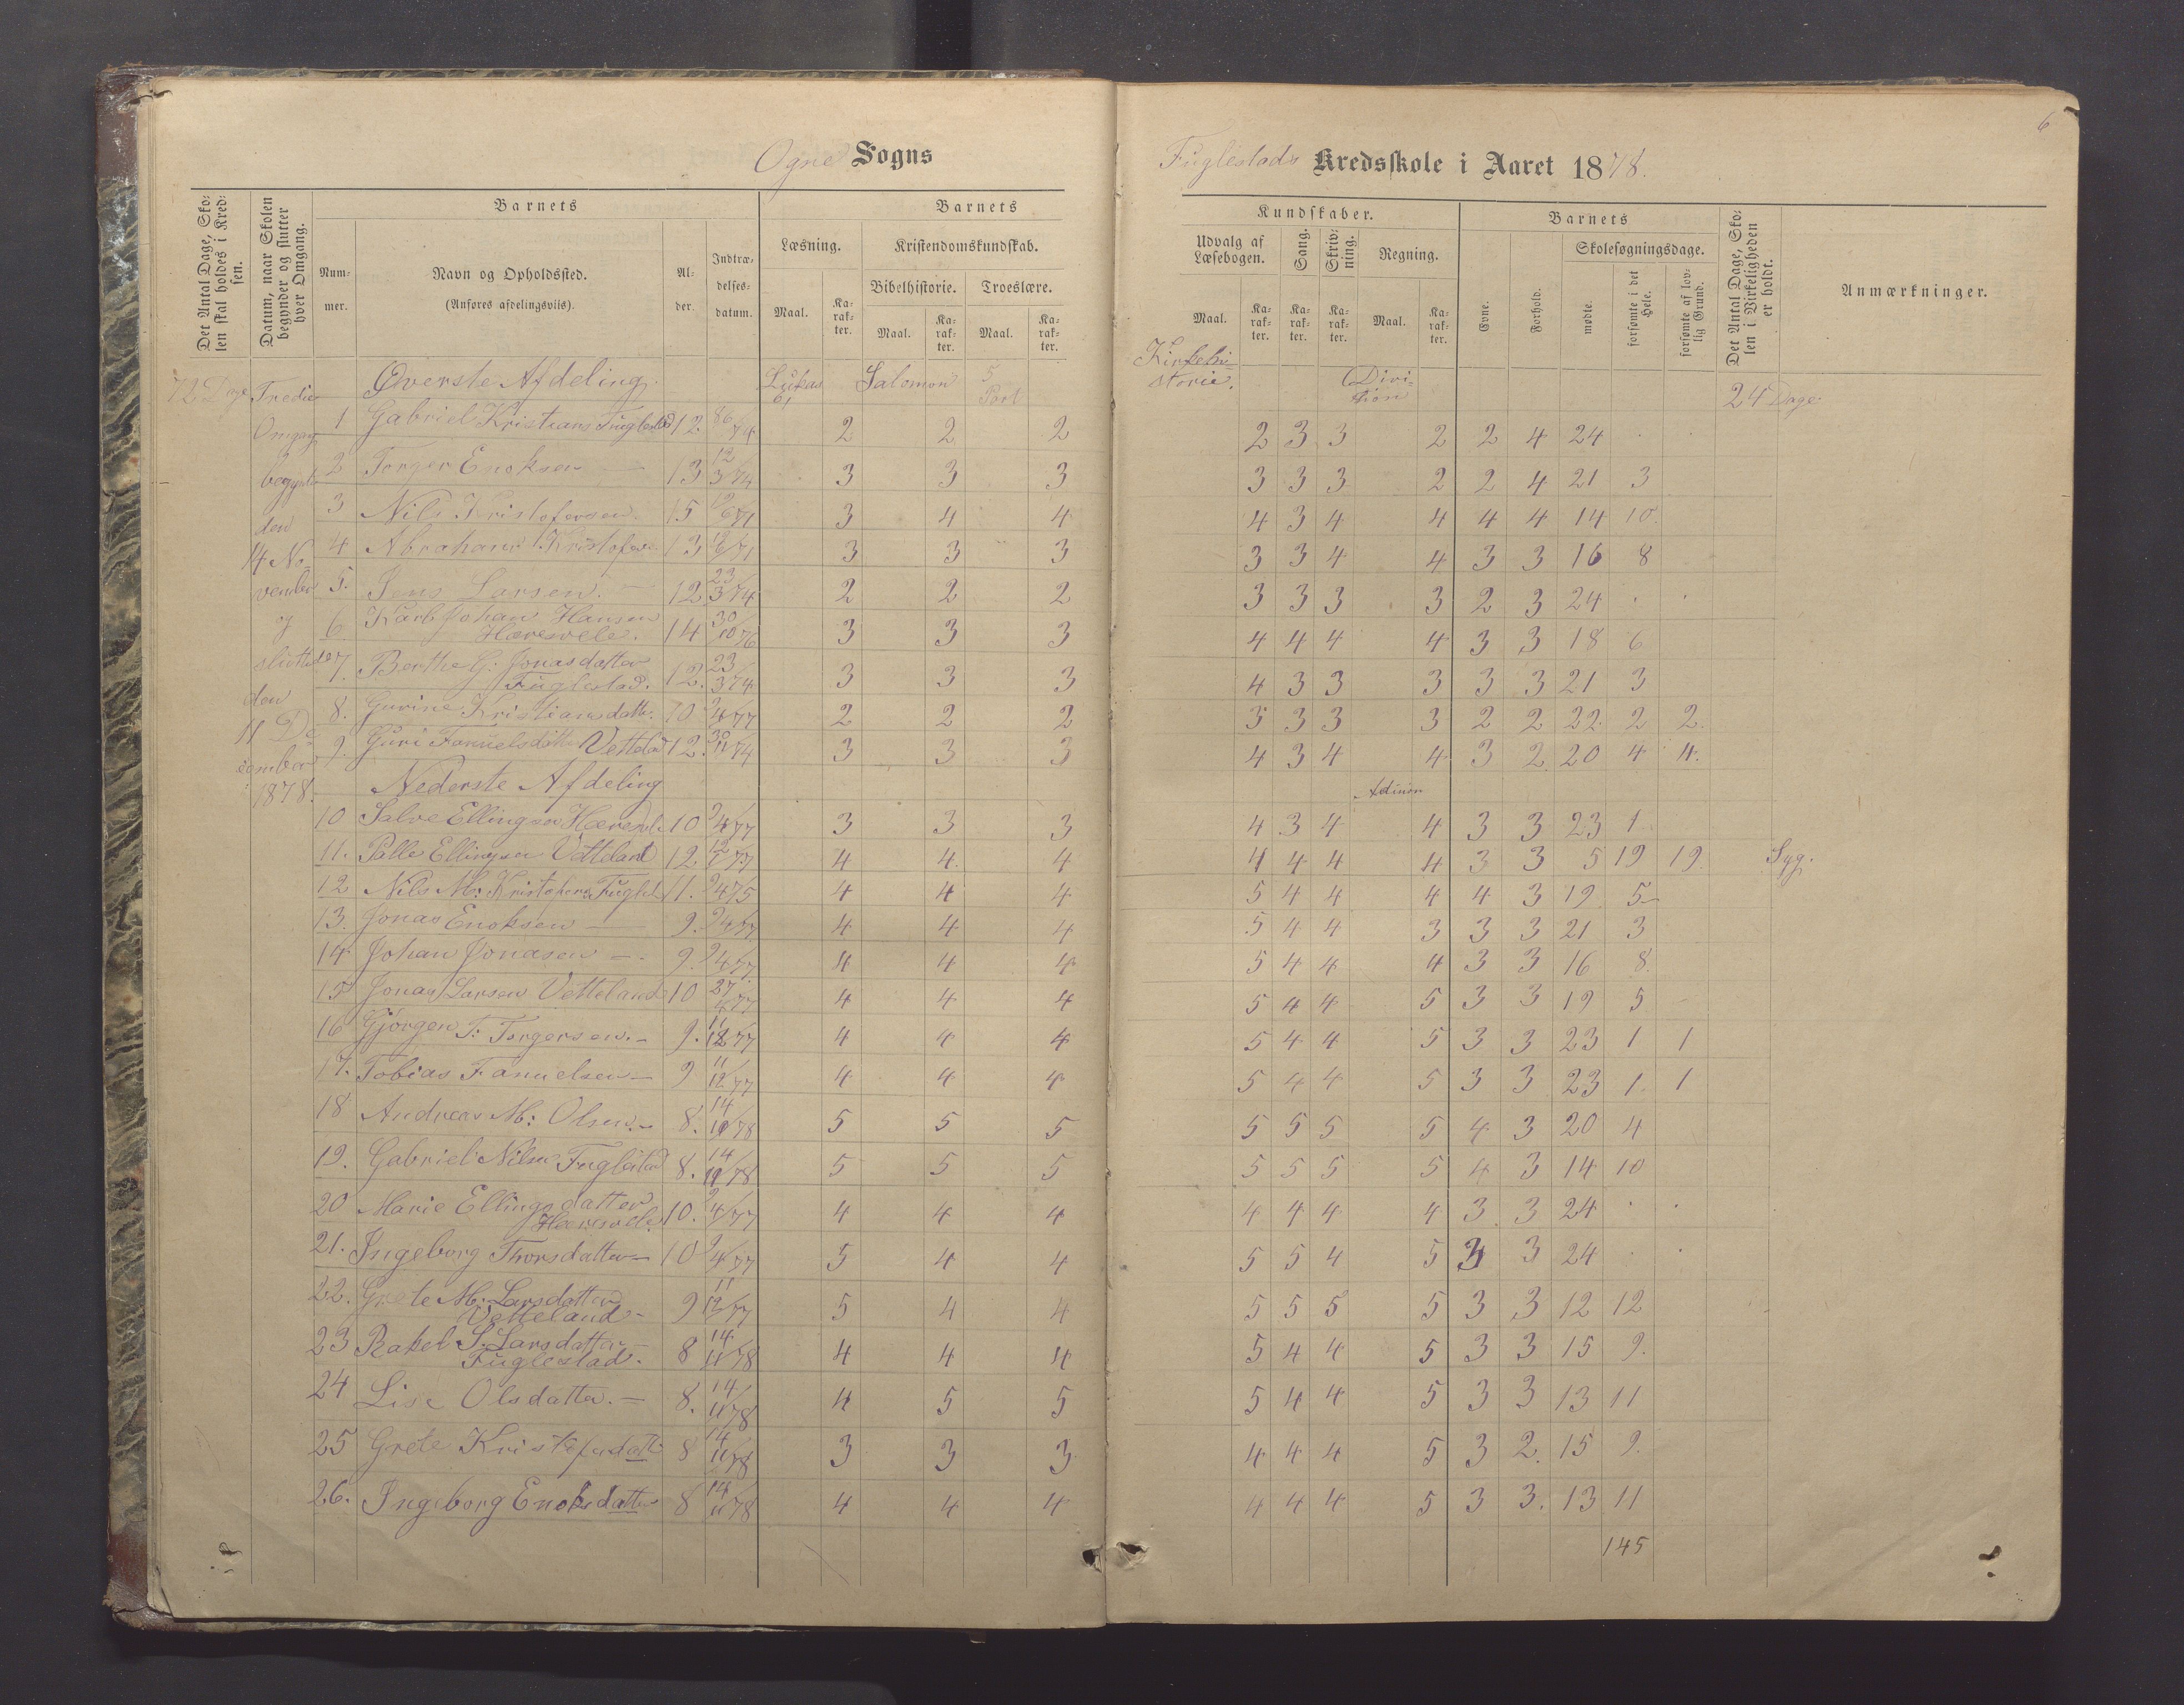 6
Ogne Sogns
Fuglestads Kredsskole i Aaret 1878.
Det Antal Dage, Skolen skal holdes i Kredsen.
Datum, naar Skolen begynder og slutter hver Omgang.
Barnets
Nummer.
Navn og Opholdssted.
(Anføres afdelingsvils).
Alder.
Indtrædelsesdatum.
Barnets
Læsning.
Kristendomskundskab.
Bibelhistorie.
Troeslære.
Maal.
Karakter.
Maal.
Karakter.
Maal.
Karakter.
Kundskaber.
Udvalg af Læsebogen.
Sang.
Skrivning.
Regning.
Maal.
Karakter.
Karakter.
Karakter.
Maal.
Karakter.
Barnets
Evne.
Forhold.
Skolesøgningsdage.
mødte.
forsømte i det Hele.
forsømte af lovlig Grund.
Det Antal Dage, Skolen i Virkeligheden er holdt.
Anmærkninger.
72 Dage Tredie Omgag begynte den 14 November og sluttede den 11 December 1878.
Øverste Afdeling. Lukas Salomon 5 Part Kirkehistorie. Division 24 Dage
1 Gabriel Kristians Fuglestad 12 2 2 2 2 3 3 2 2 4 24 . .
2 Torger Enoksen — 13 12/3 74 3 3 3 3 3 3 2 2 4 21 3
3 Nils Kristofersen. 15 3 4 4 4 3 4 4 4 4 14 10.
4 Abraham Kristofers 13 3 3 3 3 3 4 4 3 3 16 8
5. Jens Larsen. — 12 23/3 74 2 2 2 3 3 3 3 2 3 24 . .
6 Karl Johan Hansen Hæresvele. 14 30/10 76 3 3 3 4 4 4 4 3 3 18 6
7. Berthe G: Jonasdatter Fuglestad. 12. 23/3 74 3 3 3 4 3 3 3 3 3 21 3
8. Gurine Kristiansdatter 10 9/4 77 2 2 2 3 3 3 3 2 2 22 2 2.
9. Guri Fanuelsdatter Vetteland 12. 30/11 74 3 3 3 4 3 4 4 3 2 20 4 4.
Nederste Afdeling Adition
10 Salve Ellingsen Hæresvele 10 9/4 77 3 3 3 4 3 4 4 3 3 23 1
11. Palle Ellingsen Vetteland 12. 4 4 4 4 4 4 4 3 3 5 19 19. Syg.
12 Nils M: Kristofersen Fuglest 11. 9/4 75 4 4 4 5 4 4 4 4 3 19 5
13. Jonas Enoksen — 9. 9/4 77 4 4 4 5 4 4 3 3 3 21 3
14 Johan Jonasen — 9. 9/4 77. 4 4 4 5 4 4 4 3 3 16 8.
15 Jonas Larsen Vetteland 10 4 4 4 5 4 4 5 3 3 19 5
16 Gjørgen T: Torgersen. — 9. 11/12 77 4 4 4 5 4 4 5 3 3 23 1 1
17. Tobias Fanuelsen — 9 11/12 77 4 4 4 5 4 4 5 3 3 23 1. 1
18 Andreas M: Olsen. — 8. 14/11 78 5 5 5 5 5 5 5 4 3 20 4
19. Gabriel Nilsen Fuglestad 8. 14/11 78 5 5 5 5 5 5 5 4 3 14 10
20 Marie Ellingsdatter Hæresvele. 10. 9/4 77 4 4 4 4 4 4 4 3 3 24 . .
21. Ingeborg Thorsdatter — 10 9/4 77 5 4 4 5 5 4 5 3 3 24 . .
22. Grete M: Larsdatter Vetteland — 9 11/12 77 5 4 4 5 5 5 5 3 3 12 12
23 Rakel S. Larsdatter Fuglestad. 8 14/11 78 4 4 4 5 4 4 5 3 3 15 9.
24 Lise Olsdatter. — 8. 14/11 78 4 5 5 5 4 4 5 3 3 13 11
25 Grete Kristofersdatt 8 14/11 78 3 3 3 4 4 4 5 3 2. 15 9.
26. Ingeborg Enoksdatter 8 14/11 78 4 4 4 4 4 4 5 3 3. 13 11
145